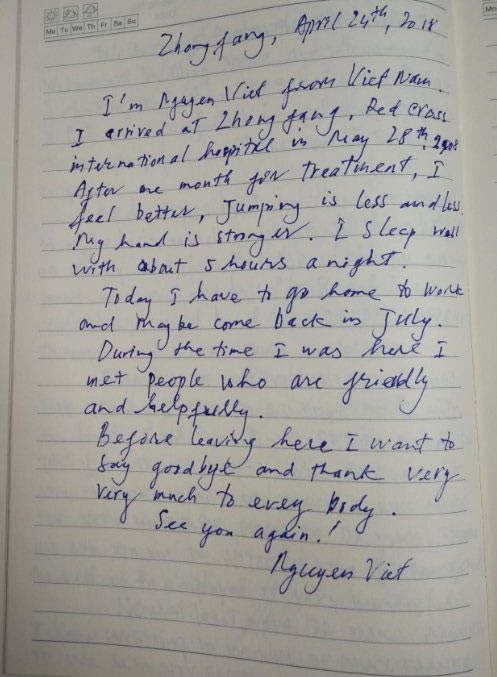 Mo Tu We Th Fr Sa Su
Zhongfang, April 24th, 2018
I'm Nguyen Viet from Viet Nam.
I arrived at Zhongfang, Red Cross
international hospital in May 28th, 2018
After one month for treatment, I
feel better, Jumping is less and less.
My hand is stronger. I sleep well
with about 5 hours a night.
Today I have to go home to work
and maybe come back in July.
During the time I was here I
met people who are friendly
and helpfully.
Before leaving here I want to
say goodbye and thank very
very much to every body.
See you again!
Nguyen Viet
Mo